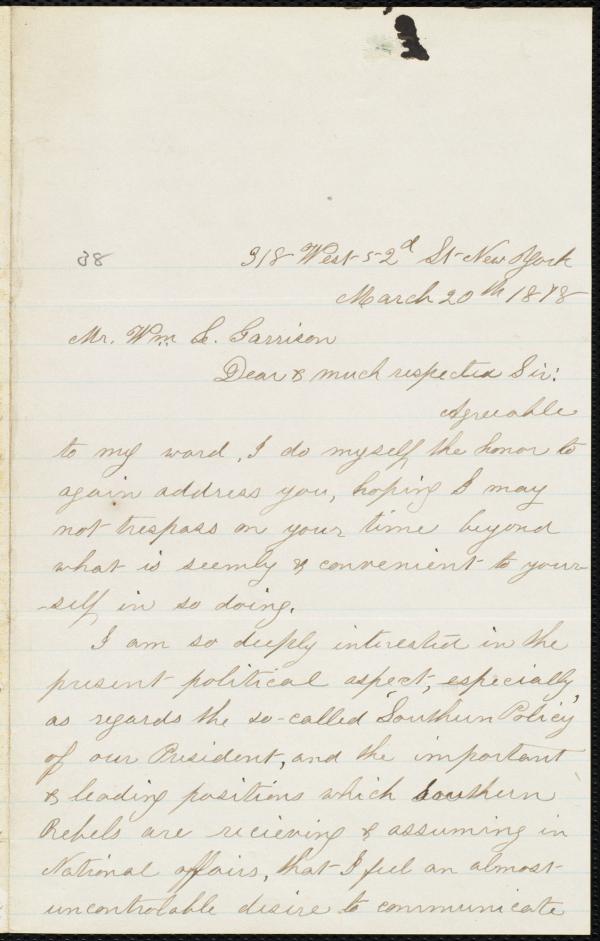 38
318 West 52d St New York
March 20th 1878
Mr. Wm L. Garrison
Dear & much respected Sir:
Agreeable
to my word, I do myself the honor to
again address you, hoping I may
not trespass on your time beyond
what is seemly & convenient to your-
-self in so doing.
I am so deeply interested in the
present political aspect, especially,
as regards the so-called 'Southern Policy'
of our President, and the important
& leading positions which Southern
Rebels are recieving & assuming in
National affairs, that I feel an almost
uncontrolable desire to communicate